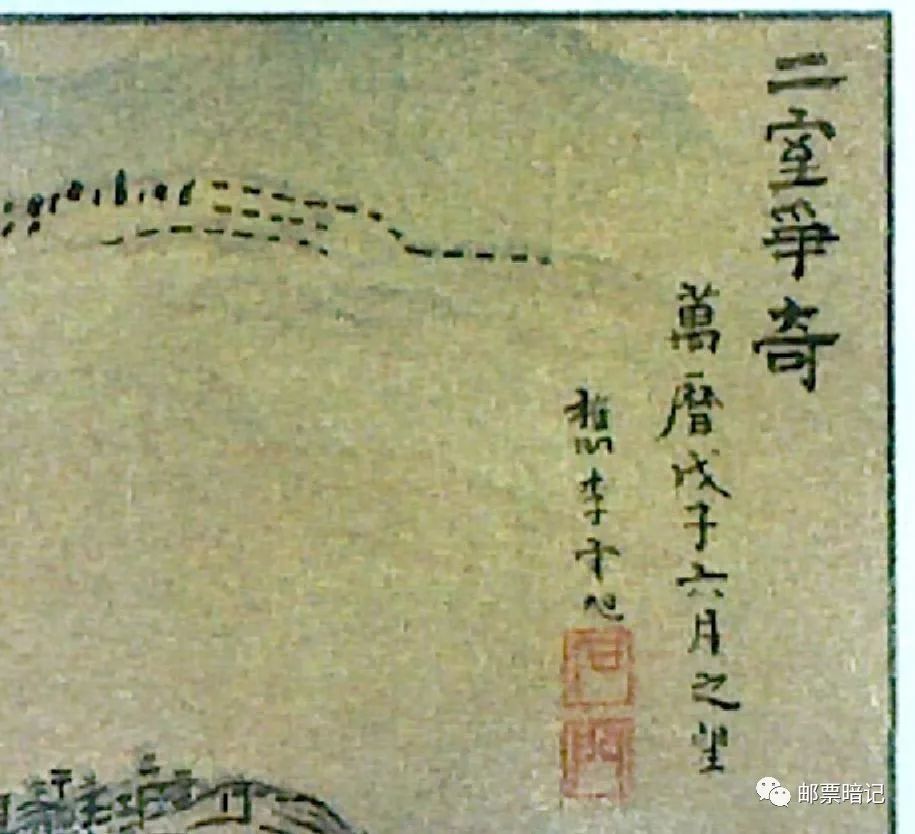 二室爭奇
萬曆戊子六月之望
檇李宋旭
邮票暗记